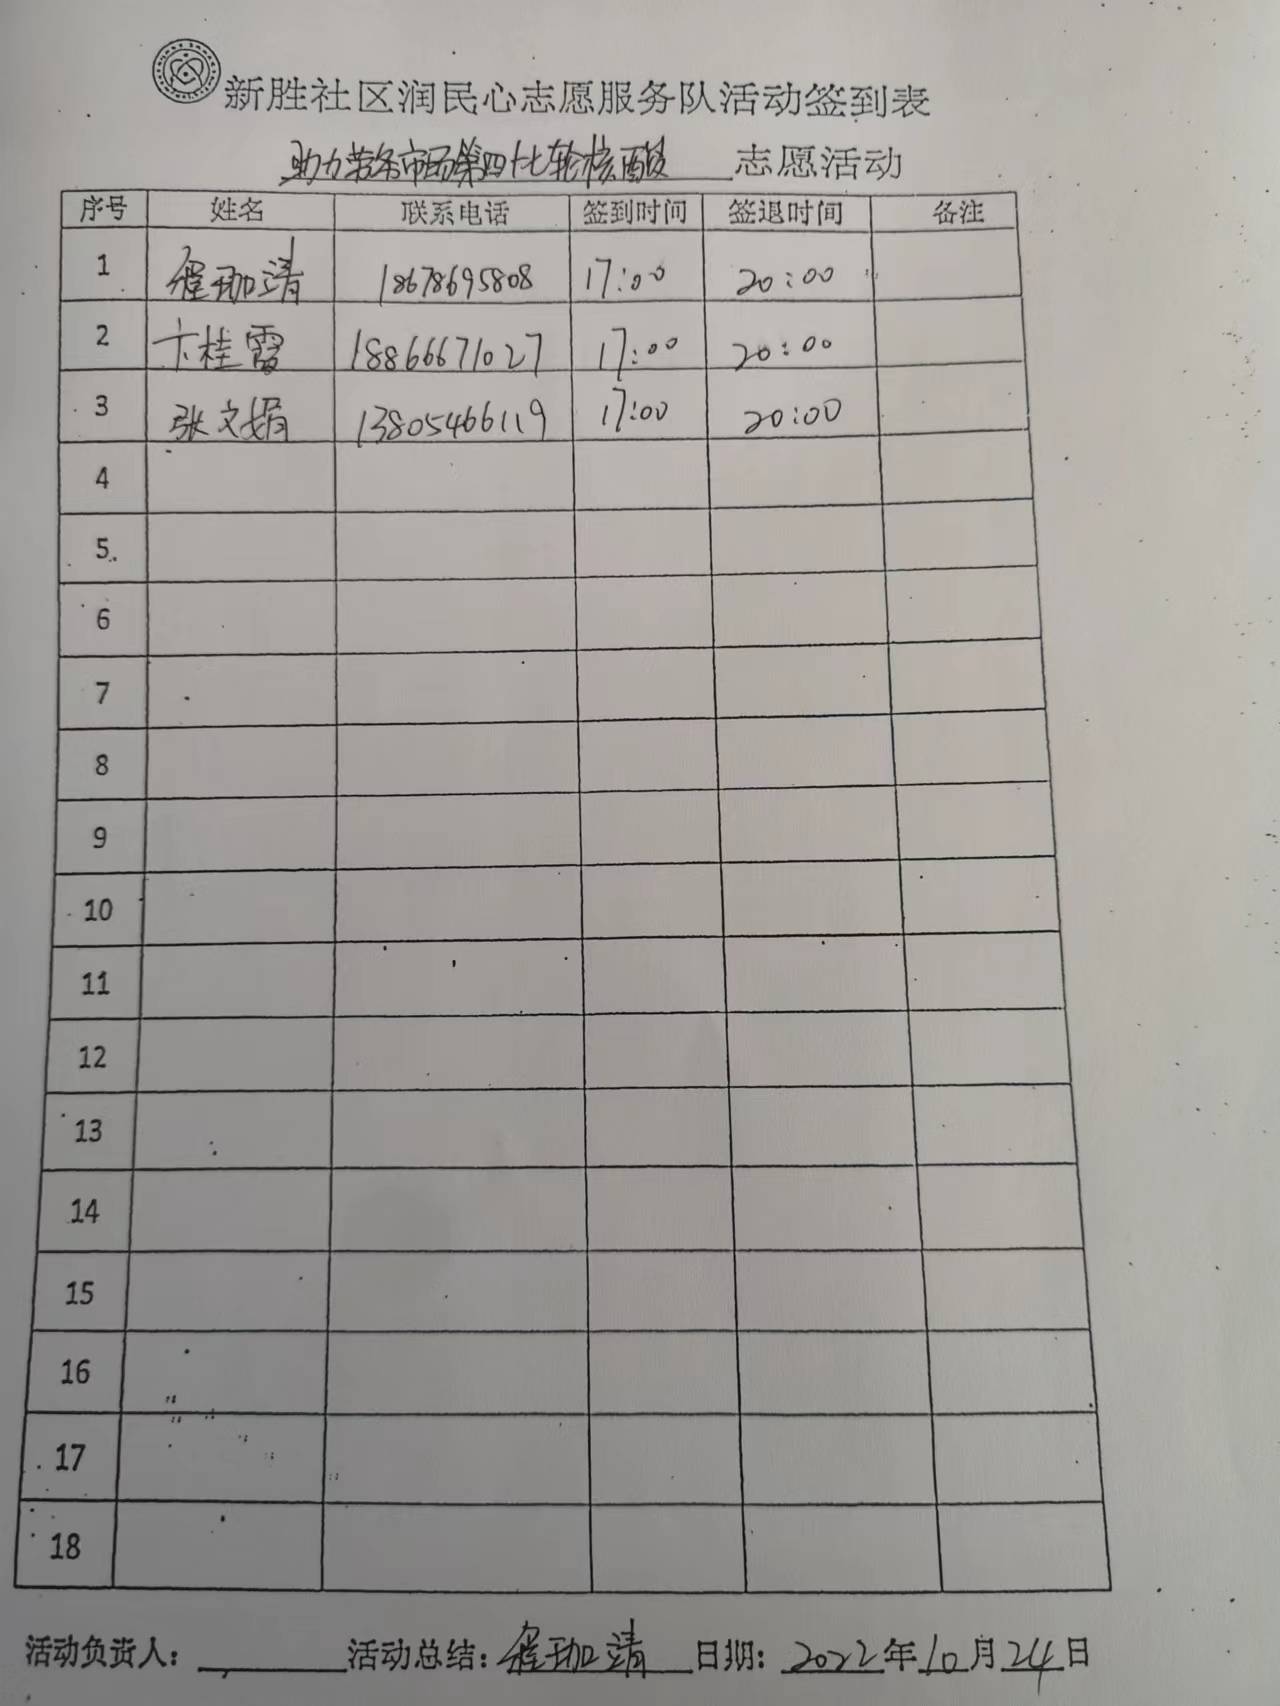 新胜社区润民心志愿服务队活动签到表
助力劳务市场第四十七轮核酸 志愿活动
序号 姓名 联系电话 签到时间 签退时间 备注
1 崔珈靖 18678695808 17:00 20:00
2 卞桂霞 18866671027 17:00 20:00
3 张文娟 13805466119 17:00 20:00
4
5
6
7
8
9
10
11
12
13
14
15
16
17
18
活动负责人: 活动总结: 崔珈靖 日期: 2022年10月24日